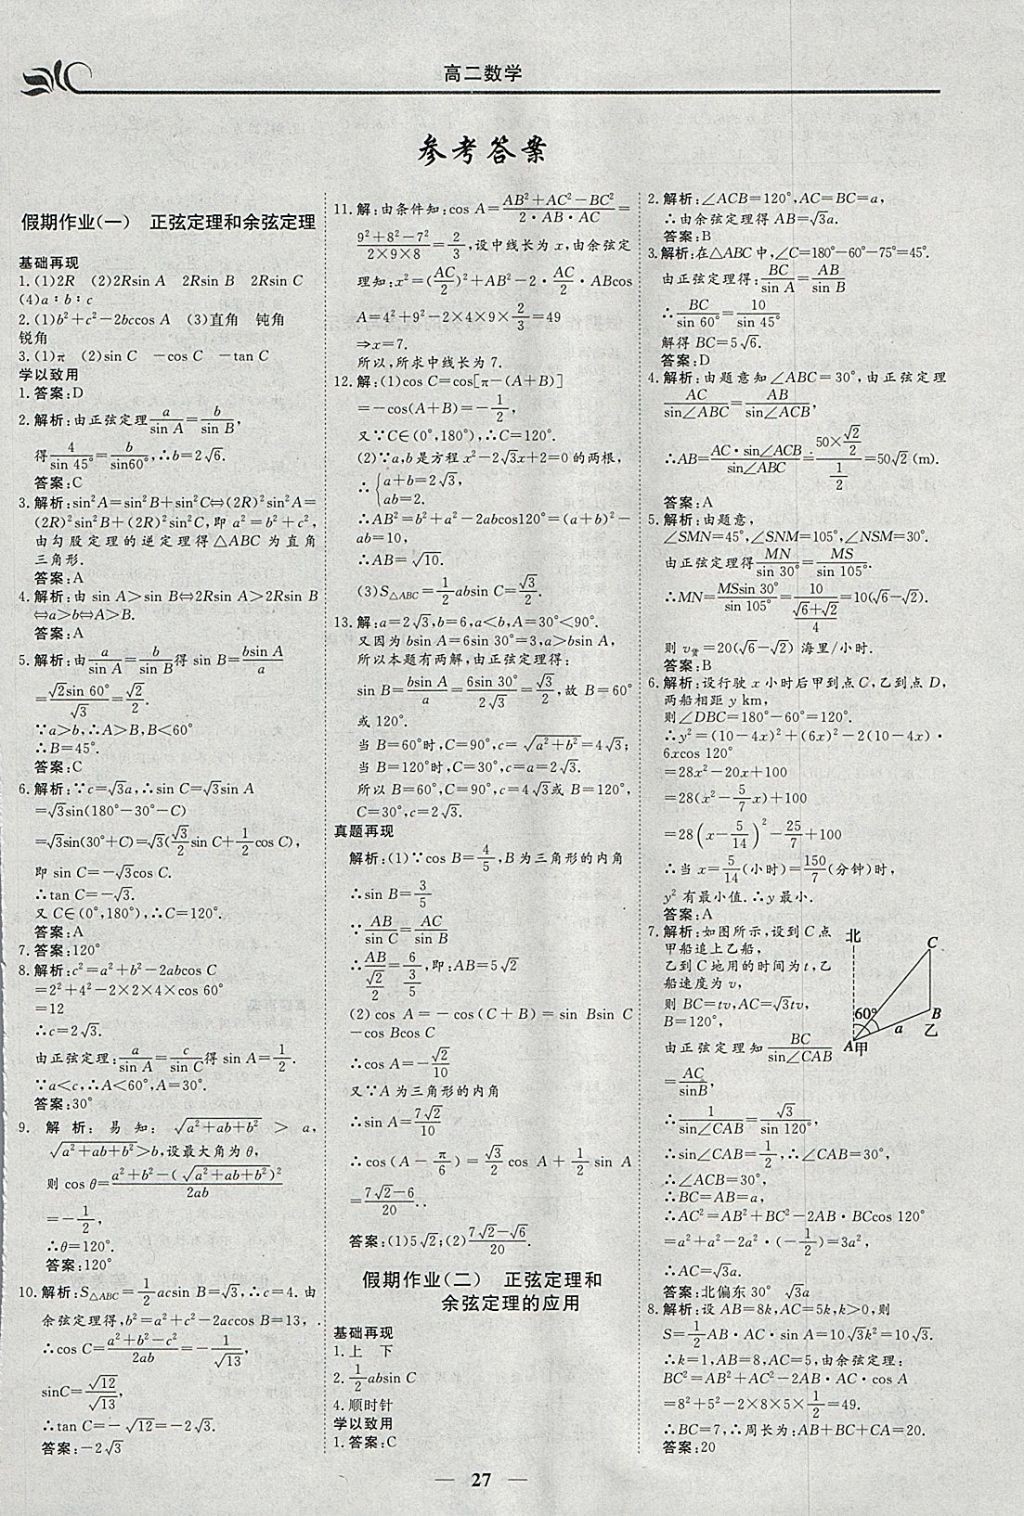 高二数学
参考答案
假期作业(一) 正弦定理和余弦定理
基础再现
1.(1)2R (2)2Rsin A 2Rsin B 2Rsin C
(4)a∶b∶c
2.(1)b²+c²-2bccos A (3)直角 钝角
锐角
3.(1)π (2)sin C -cos C -tan C
学以致用
1.答案:D
2.解析:由正弦定理a/sin A=b/sin B,
得4/sin 45°=b/sin60°,∴b=2√6.
答案:C
3.解析:sin²A=sin²B+sin²C⇔(2R)²sin²A=
(2R)²sin²B+(2R)²sin²C,即a²=b²+c²,
由勾股定理的逆定理得△ABC为直角
三角形.
答案:A
4.解析:由sin A>sin B⇔2Rsin A>2Rsin B
⇔a>b⇔A>B.
答案:A
5.解析:由a/sin A=b/sin B得sin B=bsin A/a
=√2sin 60°/√3=√2/2.
∵a>b,∴A>B,B<60°
∴B=45°.
答案:C
6.解析:∵c=√3a,∴sin C=√3sin A
=√3sin(180°-30°-C)
=√3sin(30°+C)=√3(√3/2 sin C+1/2 cos C),
即sin C=-√3cos C.
∴tan C=-√3.
又C∈(0°,180°),∴C=120°.
答案:A
7.答案:120°
8.解析:c²=a²+b²-2abcos C
=2²+4²-2×2×4×cos 60°
=12
∴c=2√3.
由正弦定理:a/sin A=c/sin C得sin A=1/2.
∵a<c,∴A<60°,A=30°.
答案:30°
9.解析:易知:√(a²+ab+b²)>a,
√(a²+ab+b²)>b,设最大角为θ,
则cos θ=(a²+b²-(√(a²+ab+b²))²)/2ab
=-1/2,
∴θ=120°.
答案:120°
10.解析:S△ABC=1/2 acsin B=√3,∴c=4.由
余弦定理得,b²=a²+c²-2accos B=13,
∴cos C=(a²+b²-c²)/2ab=-1/√13,
sinC=√12/√13,
∴tan C=-√12=-2√3.
答案:-2√3
11.解:由条件知:cos A=(AB²+AC²-BC²)/(2·AB·AC)=
(9²+8²-7²)/(2×9×8)=2/3,设中线长为x,由余弦定
理知:x²=(AC/2)²+AB²-2·AC/2·ABcos
A=4²+9²-2×4×9×2/3=49
⇒x=7.
所以,所求中线长为7.
12.解:(1)cos C=cos[π-(A+B)]
=-cos(A+B)=-1/2,
又∵C∈(0°,180°),∴C=120°.
(2)∵a,b是方程x²-2√3x+2=0的两根,
∴{a+b=2√3,
ab=2.
∴AB²=b²+a²-2abcos120°=(a+b)²-
ab=10,
∴AB=√10.
(3)S△ABC=1/2 absin C=√3/2.
13.解:a=2√3,b=6,a<b,A=30°<90°.
又因为bsin A=6sin 30°=3,a>bsin A,
所以本题有两解,由正弦定理得:
sin B=bsin A/a=6sin 30°/2√3=√3/2,故B=60°
或120°.
当B=60°时,C=90°,c=√(a²+b²)=4√3;
当B=120°时,C=30°,c=a=2√3.
所以B=60°,C=90°,c=4√3或B=120°,
C=30°,c=2√3.
真题再现
解析:(1)∵cos B=4/5,B为三角形的内角
∴sin B=3/5
∵AB/sin C=AC/sin B
∴AB/(√2/2)=6/(3/5),即:AB=5√2
(2)cos A=-cos(C+B)=sin Bsin C
-cos Bcos C
∴cos A=-√2/10
又∵A为三角形的内角
∴sin A=7√2/10
∴cos(A-π/6)=√3/2 cos A+1/2 sin A
=(7√2-6)/20..
答案:(1)5√2;(2)(7√2-√6)/20.
假期作业(二) 正弦定理和
余弦定理的应用
基础再现
1.上 下
2.1/2 absin C
4.顺时针
学以致用
1.答案:C
2.解析:∠ACB=120°,AC=BC=a,
∴由余弦定理得AB=√3a.
答案:B
3.解析:在△ABC中,∠C=180°-60°-75°=45°.
由正弦定理得:BC/sin A=AB/sin B
∴BC/sin 60°=10/sin 45°
解得BC=5√6.
答案:D
4.解析:由题意知∠ABC=30°,由正弦定理
AC/sin∠ABC=AB/sin∠ACB,
∴AB=AC·sin∠ACB/sin∠ABC=(50×√2/2)/(1/2)=50√2(m).
答案:A
5.解析:由题意,
∠SMN=45°,∠SNM=105°,∠NSM=30°.
由正弦定理得MN/sin 30°=MS/sin 105°.
∴MN=MSsin 30°/sin 105°=10/((√6+√2)/4)=10(√6-√2).
则v货=20(√6-√2)海里/小时.
答案:B
6.解析:设行驶x小时后甲到点C,乙到点D,
两船相距y km,
则∠DBC=180°-60°=120°.
∴y²=(10-4x)²+(6x)²-2(10-4x)·
6xcos 120°
=28x²-20x+100
=28(x²-5/7 x)+100
=28(x-5/14)²-25/7+100
∴当x=5/14(小时)=150/7(分钟)时,
y²有最小值.∴y最小.
答案:A
7.解析:如图所示,设到C点
甲船追上乙船,
乙到C地用的时间为t,乙
船速度为v,
则BC=tv,AC=√3tv,
B=120°,
由正弦定理知BC/sin∠CAB
=AC/sinB,
∴1/sin∠CAB=√3/sin 120°,
∴sin∠CAB=1/2,∴∠CAB=30°,
∴∠ACB=30°,
∴BC=AB=a,
∴AC²=AB²+BC²-2AB·BCcos 120°
=a²+a²-2a²·(-1/2)=3a²,
∴AC=√3a.
答案:北偏东30° √3a
北
C
60°
B
a
乙
A甲
8.解析:设AB=8k,AC=5k,k>0,则
S=1/2 AB·AC·sin A=10√3k²=10√3.
∴k=1,AB=8,AC=5,由余弦定理:
BC²=AB²+AC²-2AB·AC·cos A
=8²+5²-2×8×5×1/2=49.
∴BC=7,∴周长为:AB+BC+CA=20.
答案:20
— 27 —